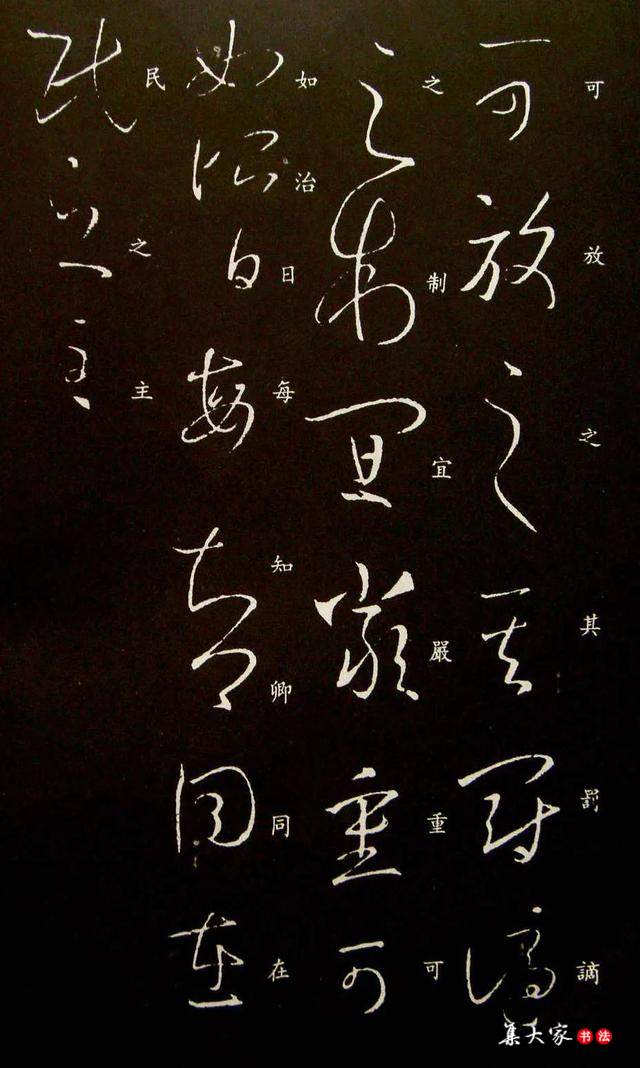 可放之其罰謫
之制宜嚴重可
如治日每知卿同在
民之主
集大家书法